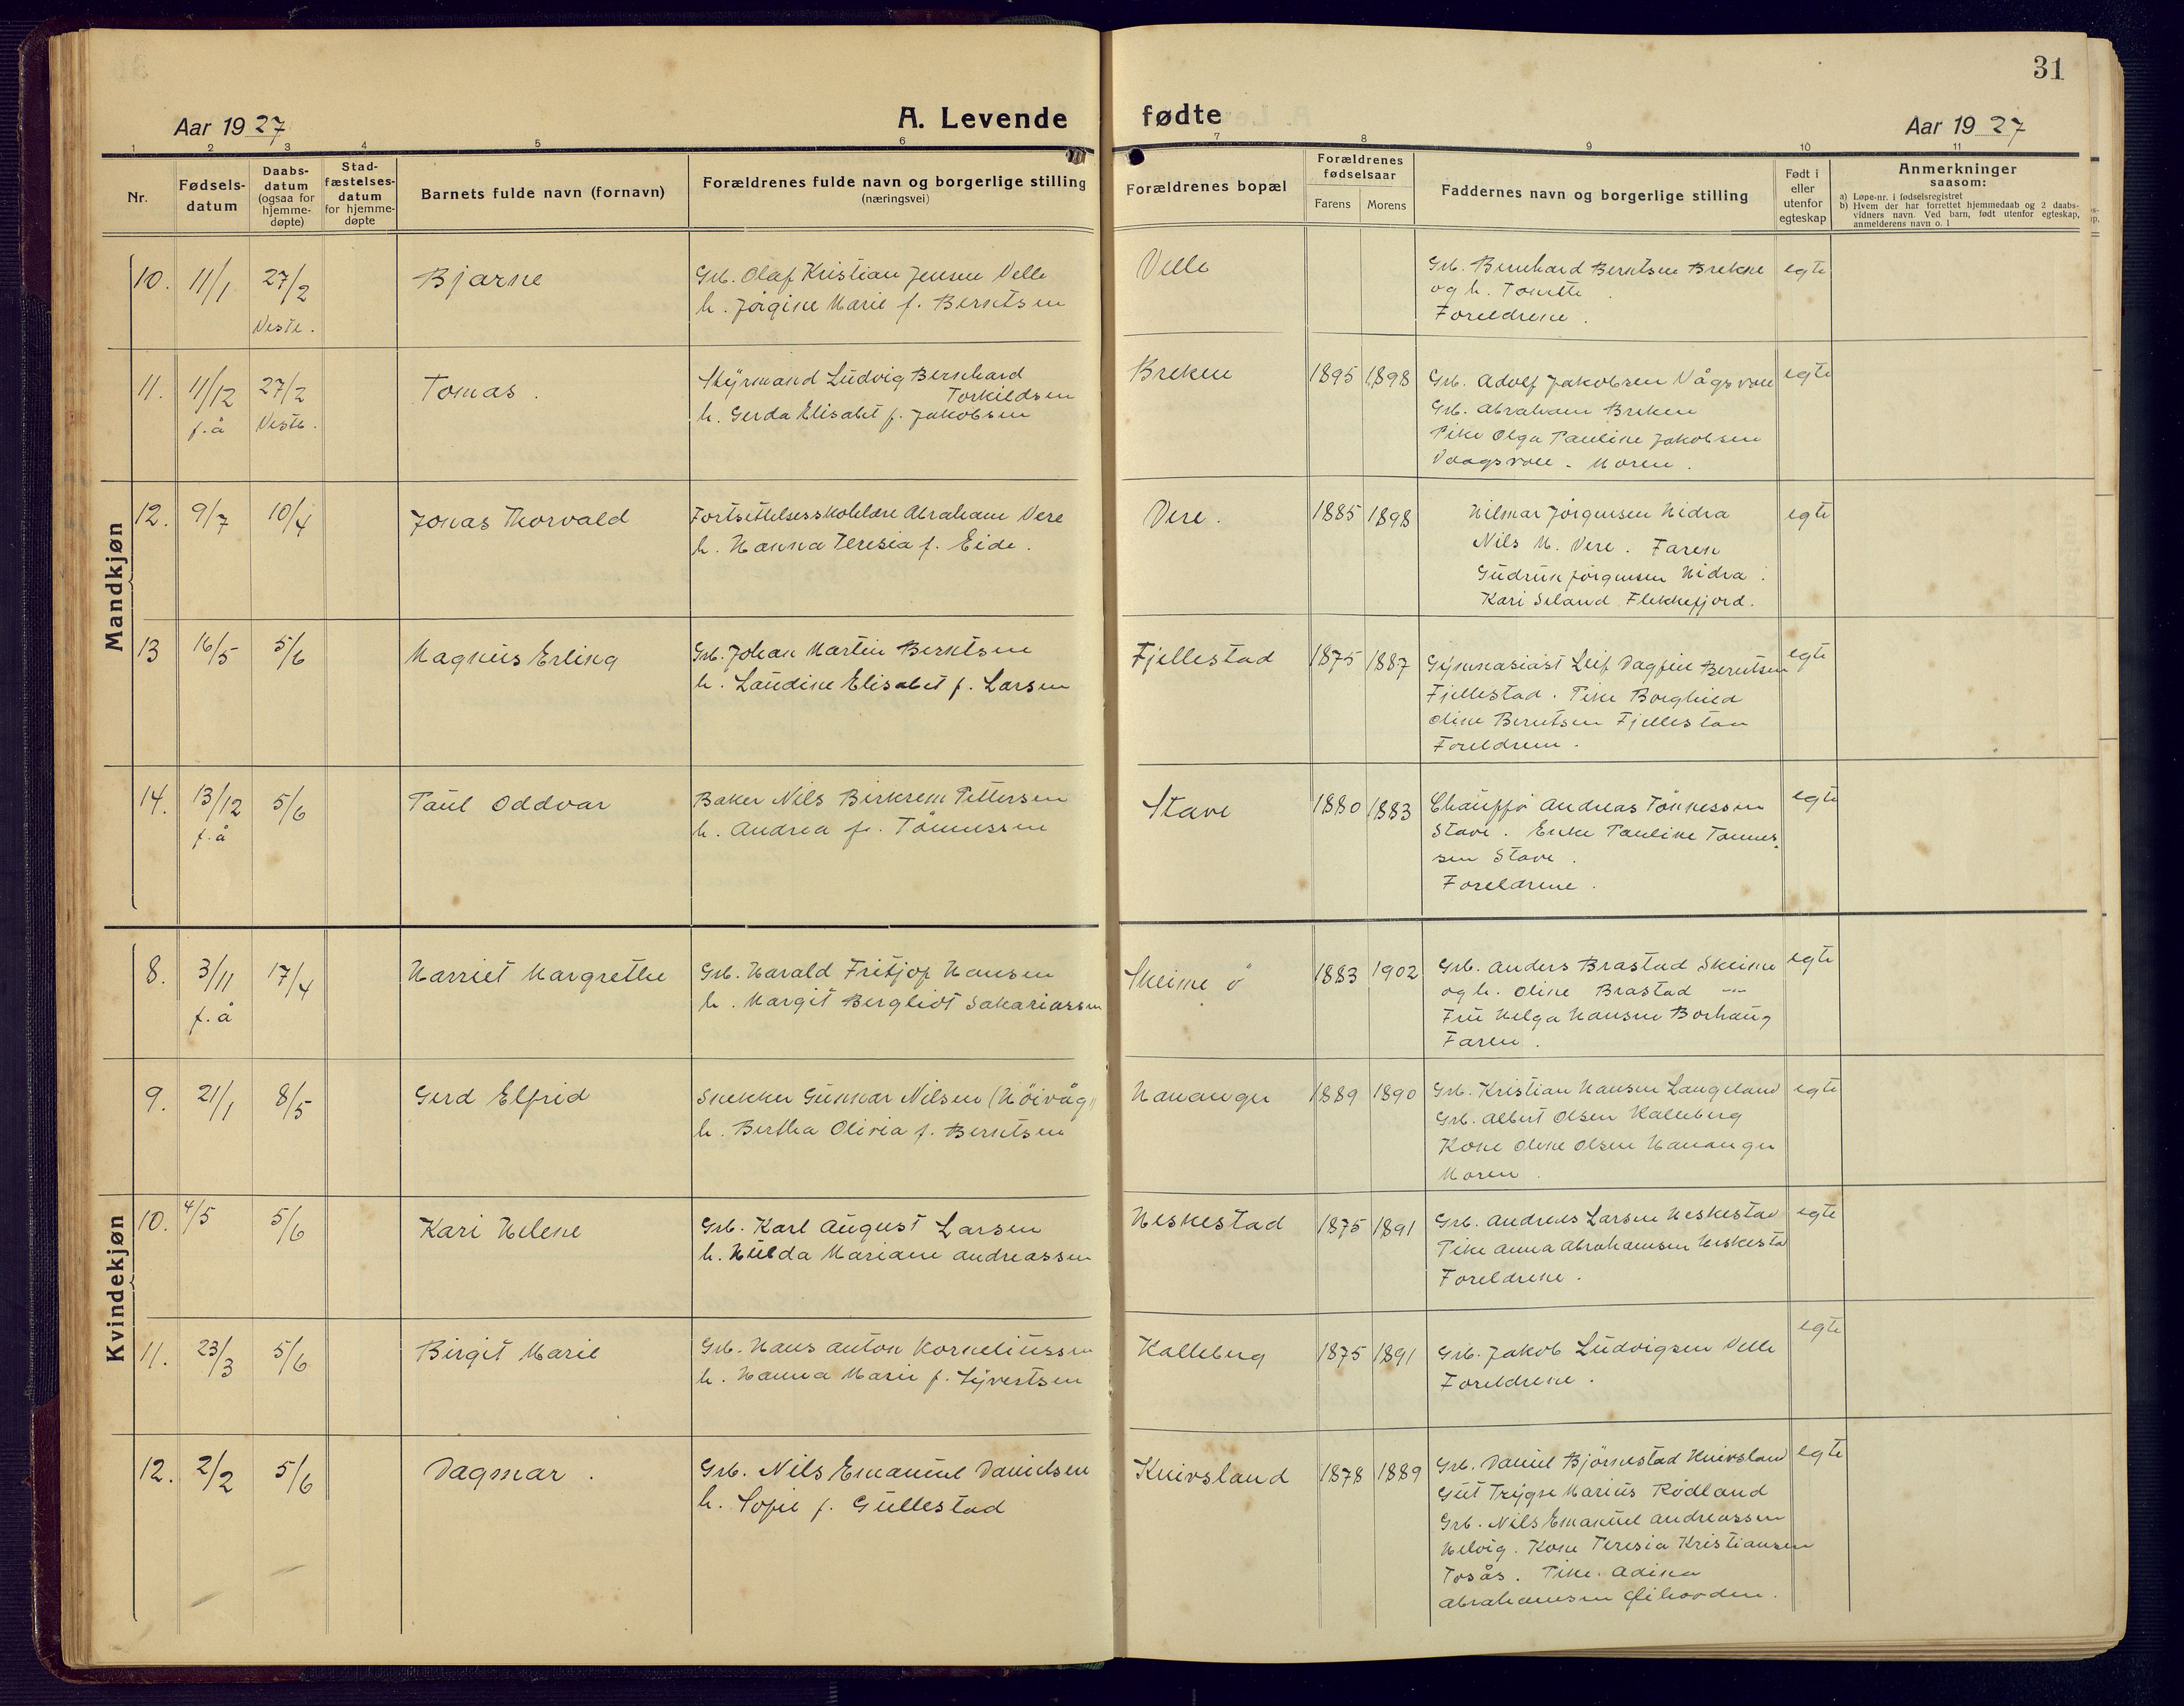 31
Aar 1927
A. Levende fødte
Aar 1927
1 2 3 4 5 6 7 8 9 10 11
Nr.
Fødsels-
datum
Daabs-
datum
(ogsaa for
hjemme-
døpte)
Stad-
fæstelses-
datum
for hjemme-
døpte
Barnets fulde navn (fornavn)
Forældrenes fulde navn og borgerlige stilling
(næringsvei)
Forældrenes bopæl
Forældrenes
fødselsaar
Farens Morens
Faddernes navn og borgerlige stilling
Født i
eller
utenfor
egteskap
Anmerkninger
saasom:
a) Løpe-nr. i fødselsregistret
b) Hvem der har forrettet hjemmedaab og 2 daabs-
vidners navn. Ved barn, født utenfor egteskap,
anmelderens navn o. l
Mandkjøn
10. 11/1 27/2 Bjarne
Vestb.
Grb. Olaf Kristian Jensen Velle
h. Jørgine Marie f. Berntsen
Velle
Grb. Bernhard Berntsen Brekne
og h. Tonette
Foreldrene.
egte
11. 11/12 27/2 Tomas.
f. å Vestb.
Styrmand Ludvig Bernhard
Torkildsen
h. Gerda Elisabet f. Jakobsen
Brekne 1895 1898
Grb. Adolf Jakobsen Vågsvoll
Grb. Abraham Brekne
Pike Olga Pauline Jakobsen
Vaagsvoll - Moren.
egte
12. 9/7 10/4 Jonas Thorvald
Fortsettelsesskolelære Abraham Vere
h. Hanna Teresia f. Eide.
Vere. 1885 1898
Hilmar Jørgensen Hidra
Nils M. Vere. Faren
Gudrun Jørgensen Hidra.
Kari Seland Flekkefjord.
egte
13 16/5 5/6 Magnus Erling
Grb. Johan Martin Berntsen
h. Laudine Elisabet f. Larsen
Fjellestad 1875 1887
Gymnasiast Leif Dagfin Berntsen
Fjellestad. Pike Borghild
Oline Berntsen Fjellestad
Foreldrene.
egte
14. 13/12 5/6 Paul Oddvar
f. å
Baker Nils Birkrem Pettersen
h. Andrea f. Tønnessen
Stave 1880 1883
Chauffø Andreas Tønnessen
Stave. Enke Pauline Tønnes-
sen Stave.
Foreldrene.
egte
Kvindekjøn
8. 3/11 17/4 Harriet Margrethe
f. å
Grb. Harald Fritjof Hansen
h. Margit Bergliot Sakariassen
Skeime ø 1883 1902
Grb. Anders Brastad Skeime
og h. Oline Brastad -"-
Fru Helga Hansen Borhaug
Faren.
egte
9. 21/1 8/5 Gerd Elfrid
Snekker Gunnar Nilsen (Høivåg)
h. Bertha Olivia f. Berntsen
Hananger 1889 1890
Grb. Kristian Hansen Langeland
Grb. Albert Olsen Kalleberg
Kone Oline Olsen Hananger
Moren.
egte
10. 4/5 5/6 Kari Helene
Grb. Karl August Larsen
h. Hulda Mariane Andreassen
Heskestad 1875 1891
Grb. Andreas Larsen Heskestad
Pike Anna Abrahamsen Heskesta
Foreldrene.
egte
11. 23/3 5/6 Birgit Marie
Grb. Hans Anton Korneliussen
h. Hanna Marie f. Syvertsen
Kalleberg 1875 1891
Grb. Jakob Ludvigsen Velle
Foreldrene.
egte
12. 2/2 5/6 Dagmar.
Grb. Nils Emanuel Danielsen
h. Sofie f. Gullestad
Knivsland 1878 1889
Grb. Daniel Bjørnestad Knivsland
Gut Trygve Marius Rødland
Grb. Nils Emanuel Andreassen
Helvig. Kone Teresia Kristiansen
Tosås. Pike Adina
Abrahamsen
egte